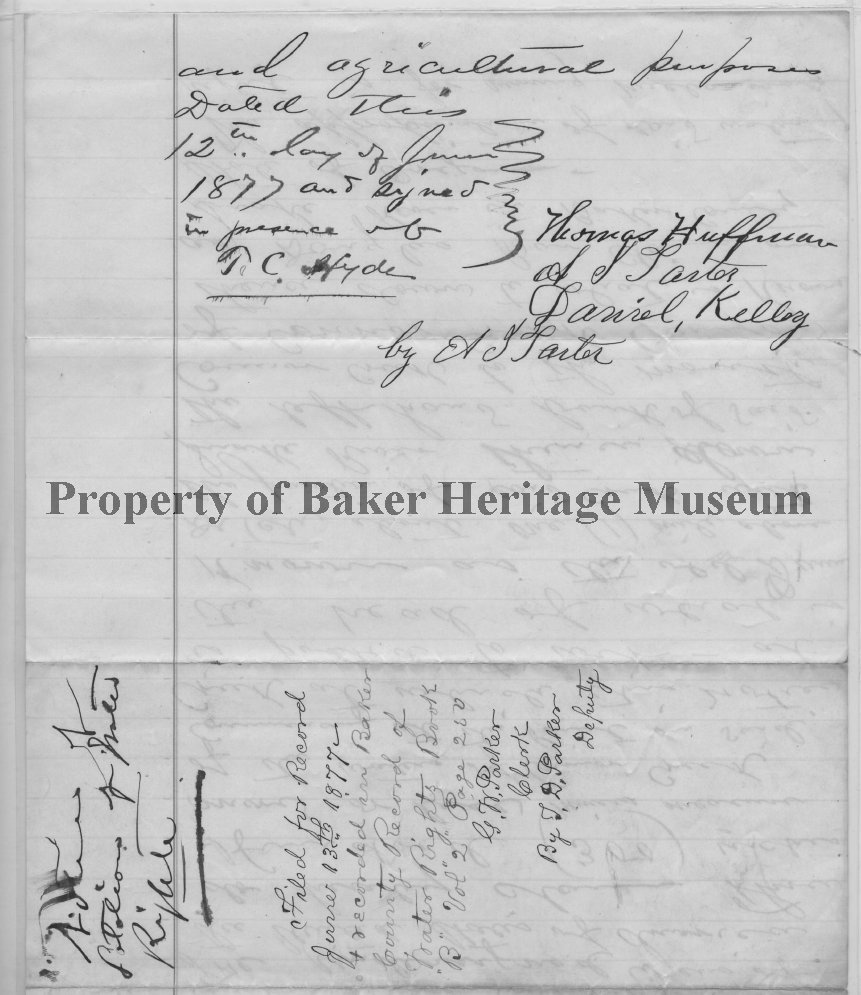 and agricultural purposes
Dated this
12th day of June
1877 and signed
in presence of
T. C. Hyde
Thomas Huffman
A T Carter
Daniel, Kelley
by A T Carter
Property of Baker Heritage Museum
Notice
of Water
Right
Filed for Record
June 13th 1877
& recorded in Baker
County Record of
"Water Rights" Book
"B" Vol "2" Page 250
G. W. Parker
Clerk
By T. D. Parker
Deputy